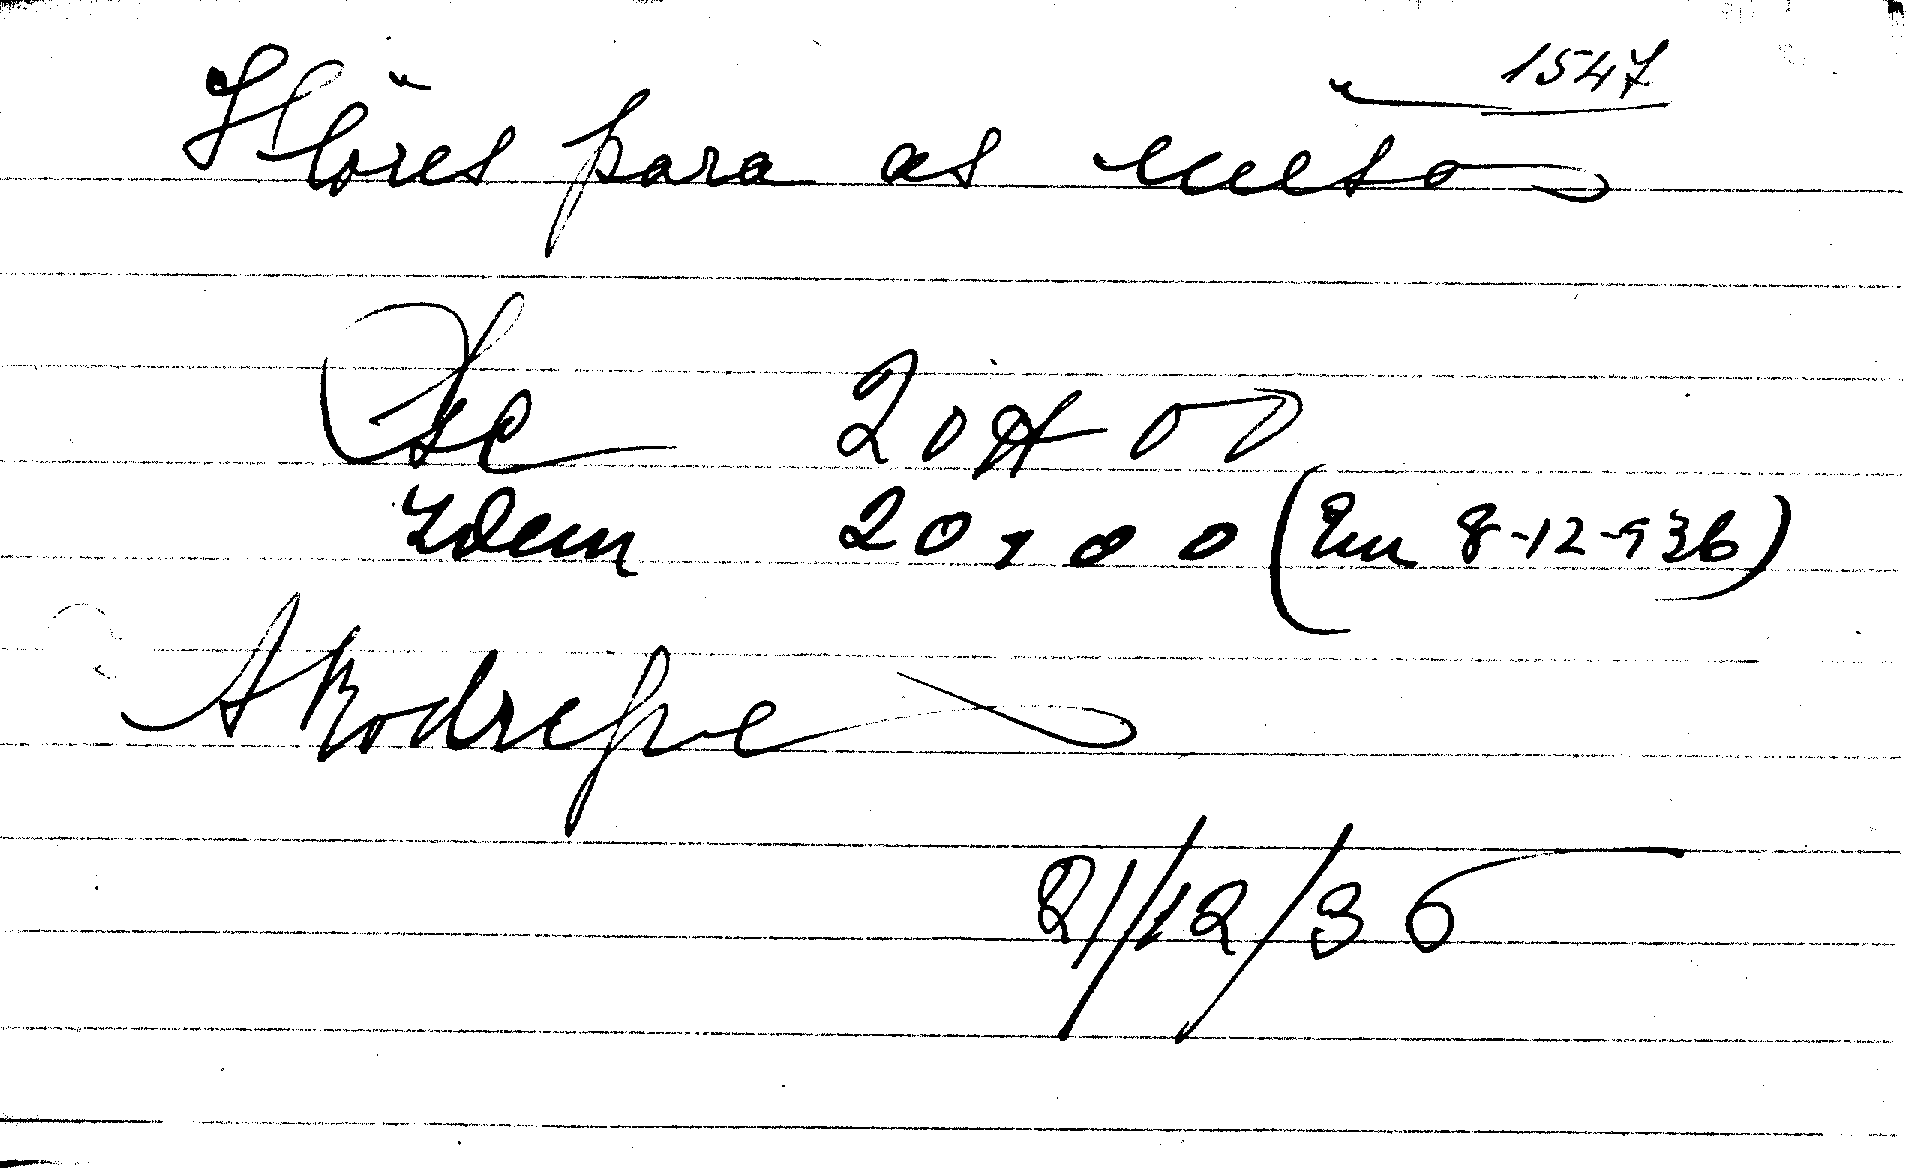 1547
Flôres para as mesas
Rs 20$00
Idem 20,00 (Em 8-12-936)
A Rodrigues
21/12/36